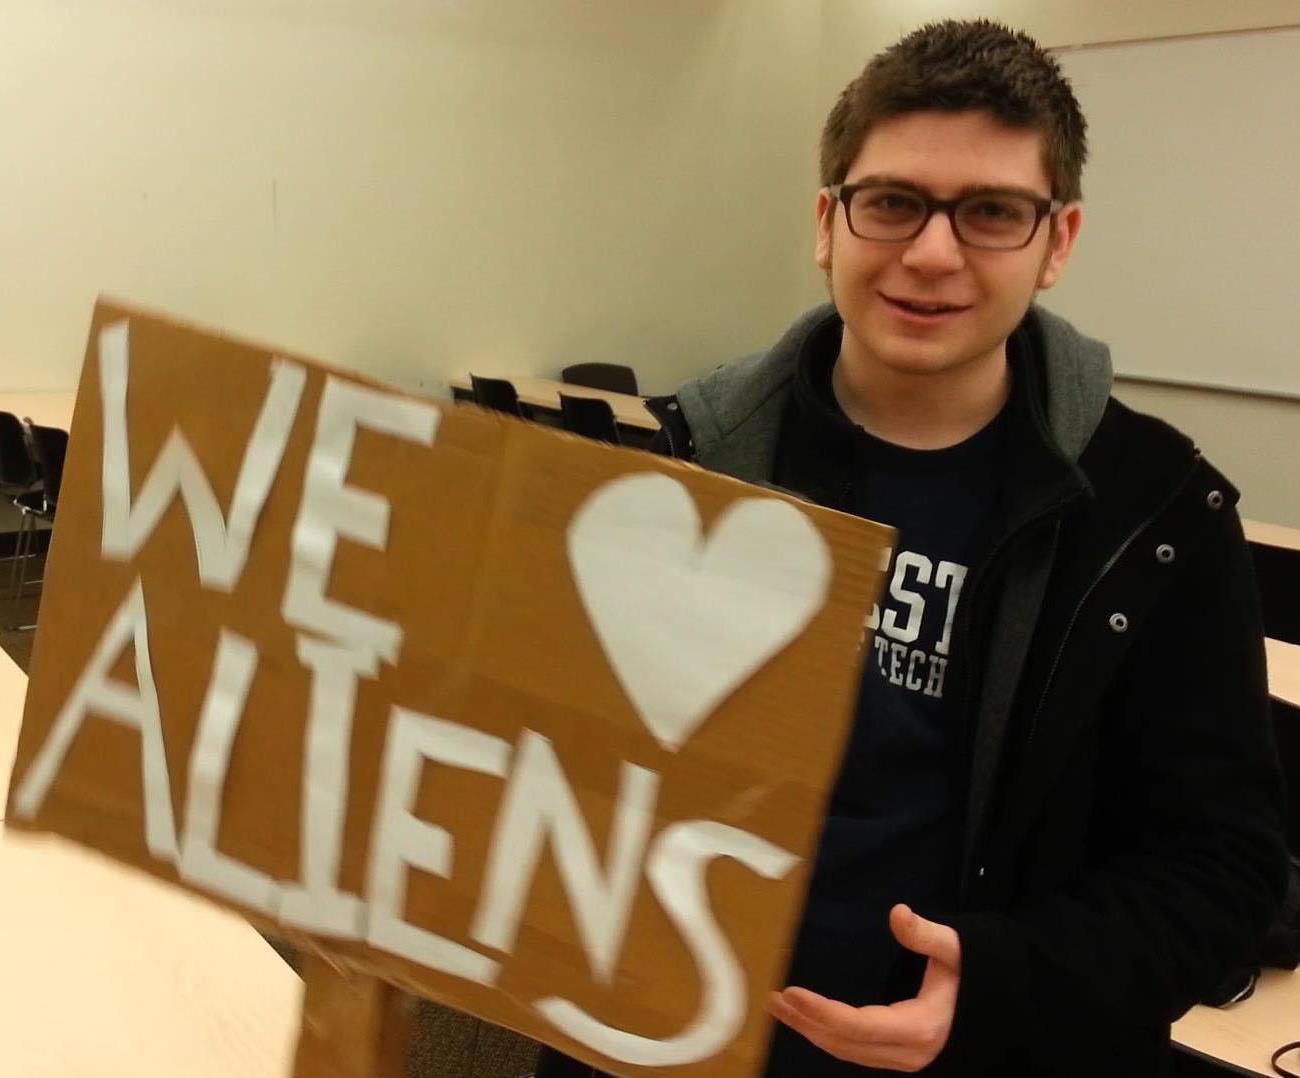 WE ♥
ALIENS
EST
TECH